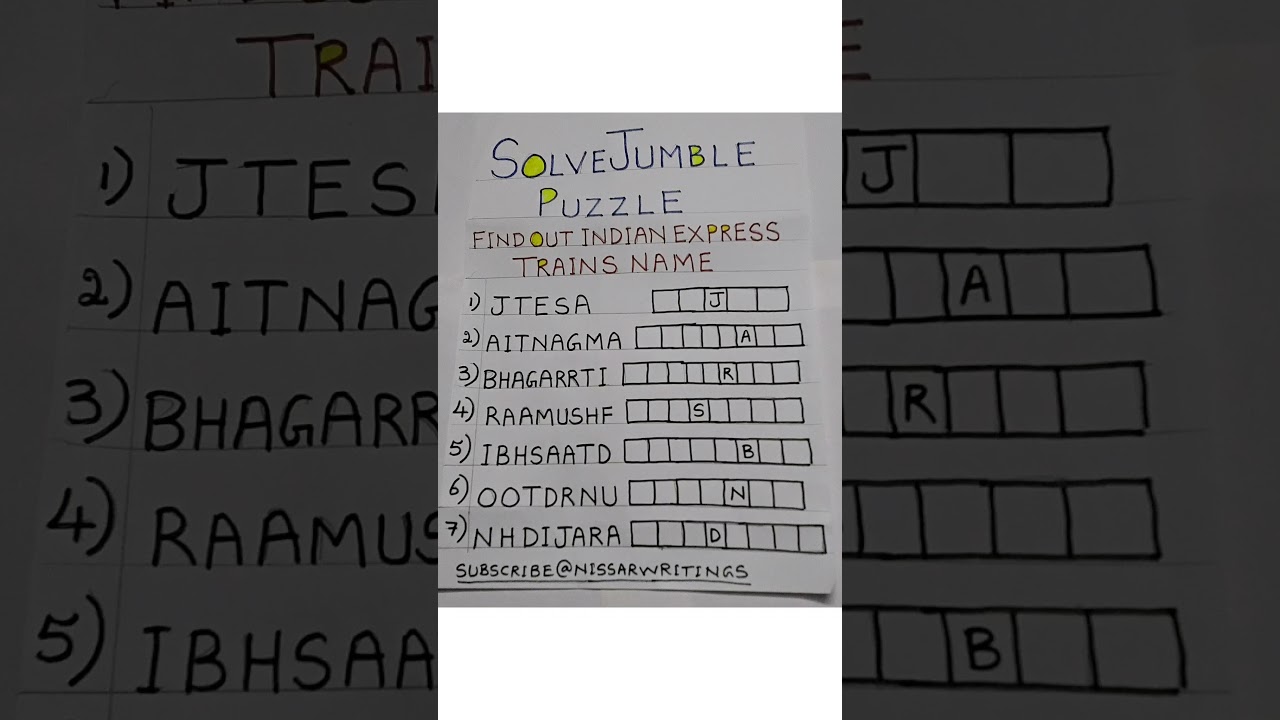 SOLVE JUMBLE
PUZZLE
FIND OUT INDIAN EXPRESS
TRAINS NAME
1) JTESA J
2) AITNAGMA A
3) BHAGARRTI R
4) RAAMUSHF S
5) IBHSAATD B
6) OOTDRNU N
7) NHDIJARA D
SUBSCRIBE@NISSARWRITINGS